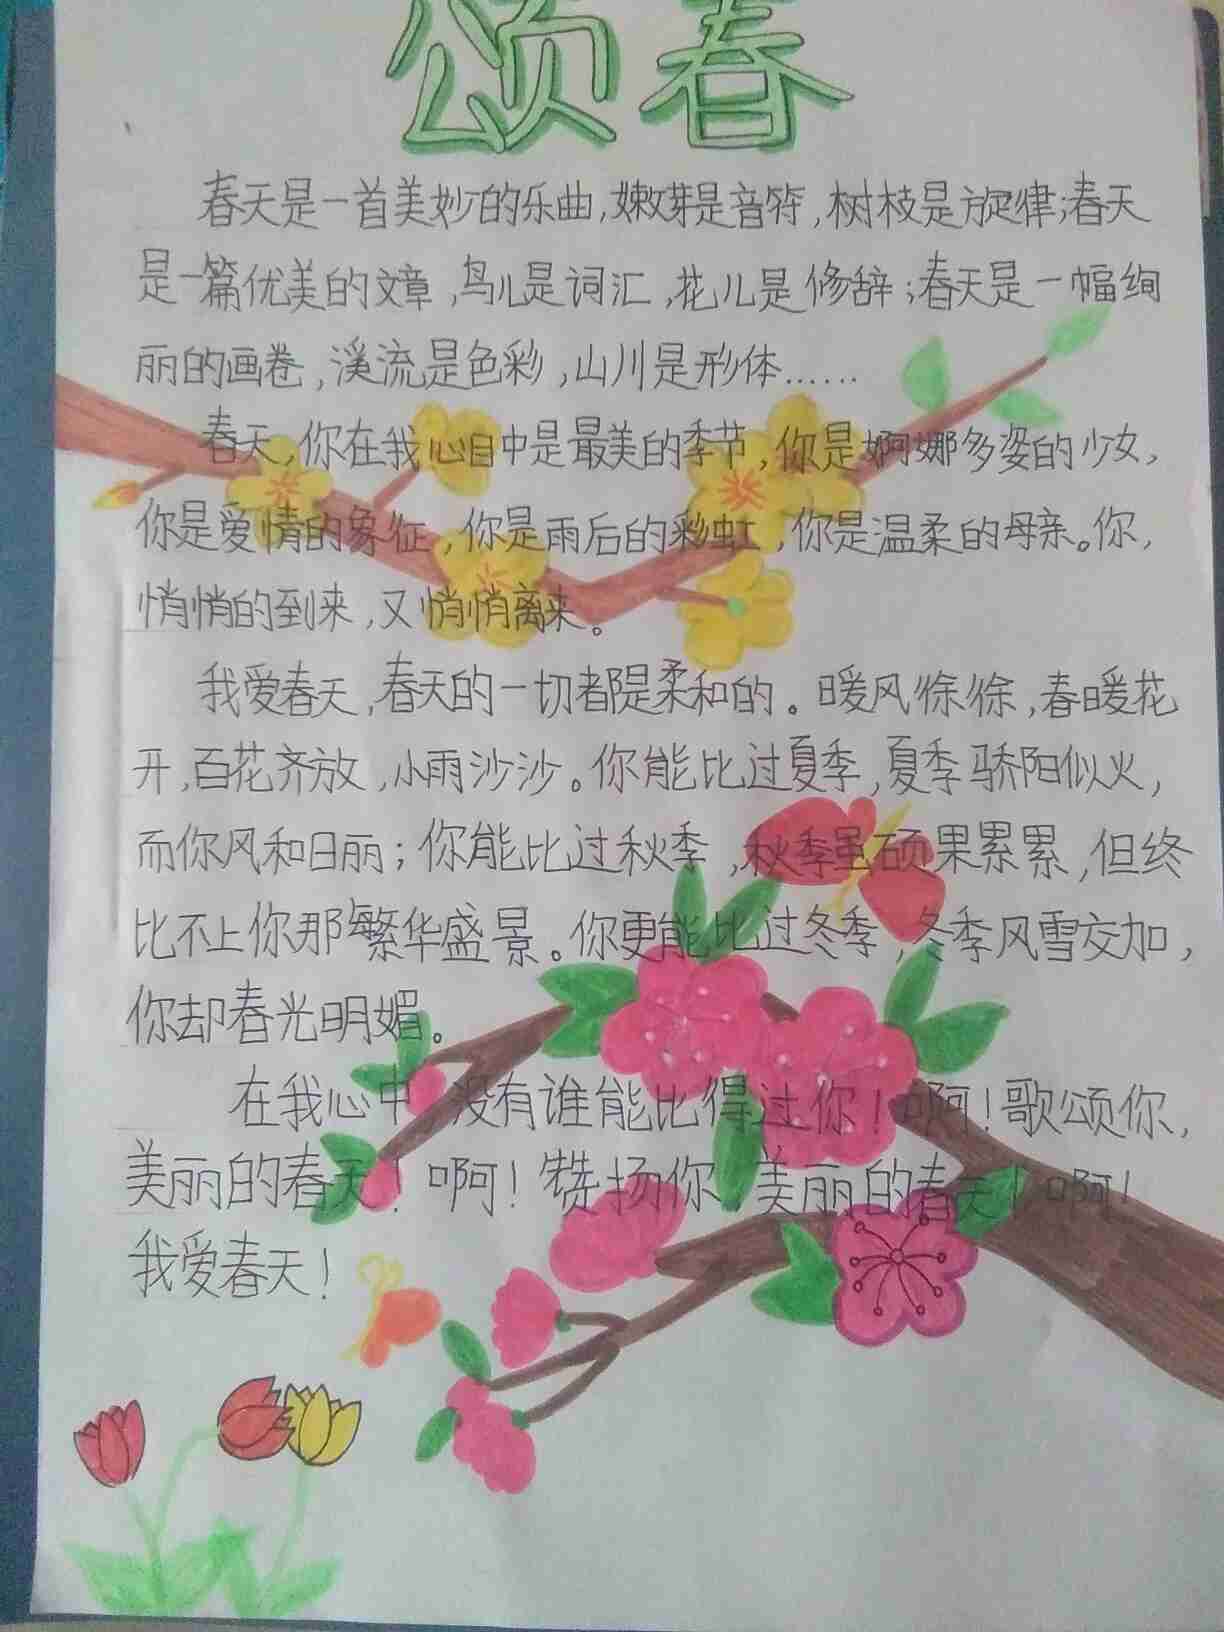 颂春
春天是一首美妙的乐曲,嫩芽是音符,树枝是旋律;春天
是一篇优美的文章,鸟儿是词汇,花儿是修辞;春天是一幅绚
丽的画卷,溪流是色彩,山川是形体……
春天,你在我心目中是最美的季节,你是婀娜多姿的少女,
你是爱情的象征,你是雨后的彩虹,你是温柔的母亲。你,
悄悄的到来,又悄悄离来。
我爱春天,春天的一切都是柔和的。暖风徐徐,春暖花
开,百花齐放,小雨沙沙。你能比过夏季,夏季骄阳似火,
而你风和日丽;你能比过秋季,秋季虽硕果累累,但终
比不上你那繁华盛景。你更能比过冬季,冬季风雪交加,
你却春光明媚。
在我心中,没有谁能比得过你!啊!歌颂你,
美丽的春天!啊!赞扬你,美丽的春天!啊!
我爱春天!